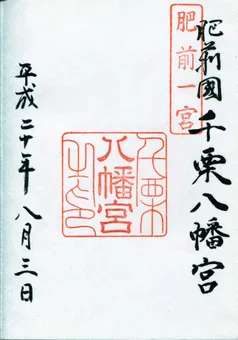 肥前一宮
肥前國千栗八幡宮
千栗
八幡宮
之印
平成二十年八月三日